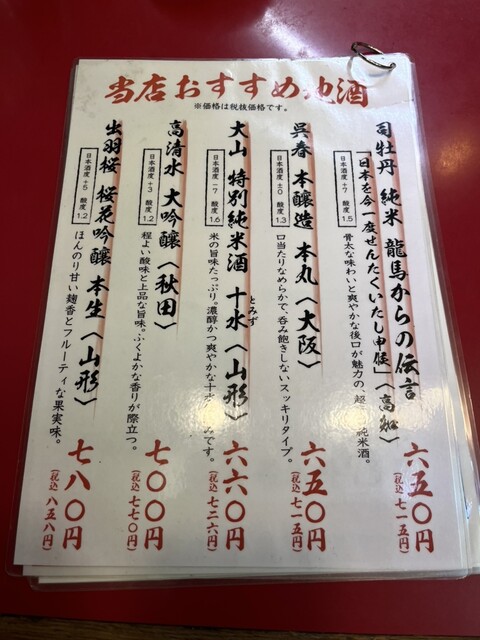 当店おすすめ地酒
※価格は税抜価格です。
司牡丹 純米 龍馬からの伝言
「日本を今一度せんたくいたし申候」〈高知〉
日本酒度 +7 酸度 1.5
骨太な味わいと爽やかな後口が魅力の、超 純米酒。
六五〇円
(税込 七一五円)
呉春 本醸造 本丸〈大阪〉
日本酒度 ±0 酸度 1.3
口当たりなめらかで、呑み飽きしないスッキリタイプ。
六五〇円
(税込 七一五円)
大山 特別純米酒 十水〈山形〉
とみず
日本酒度 -7 酸度 1.6
米の旨味たっぷり。濃醇かつ爽やかな十水 みです。
六六〇円
(税込 七二六円)
高清水 大吟醸〈秋田〉
日本酒度 +3 酸度 1.2
程よい酸味と上品な旨味。ふくよかな香りが際立つ。
七〇〇円
(税込 七七〇円)
出羽桜 桜花吟醸 本生〈山形〉
日本酒度 +5 酸度 1.2
ほんのり甘い麹香とフルーティな果実味。
七八〇円
(税込 八五八円)